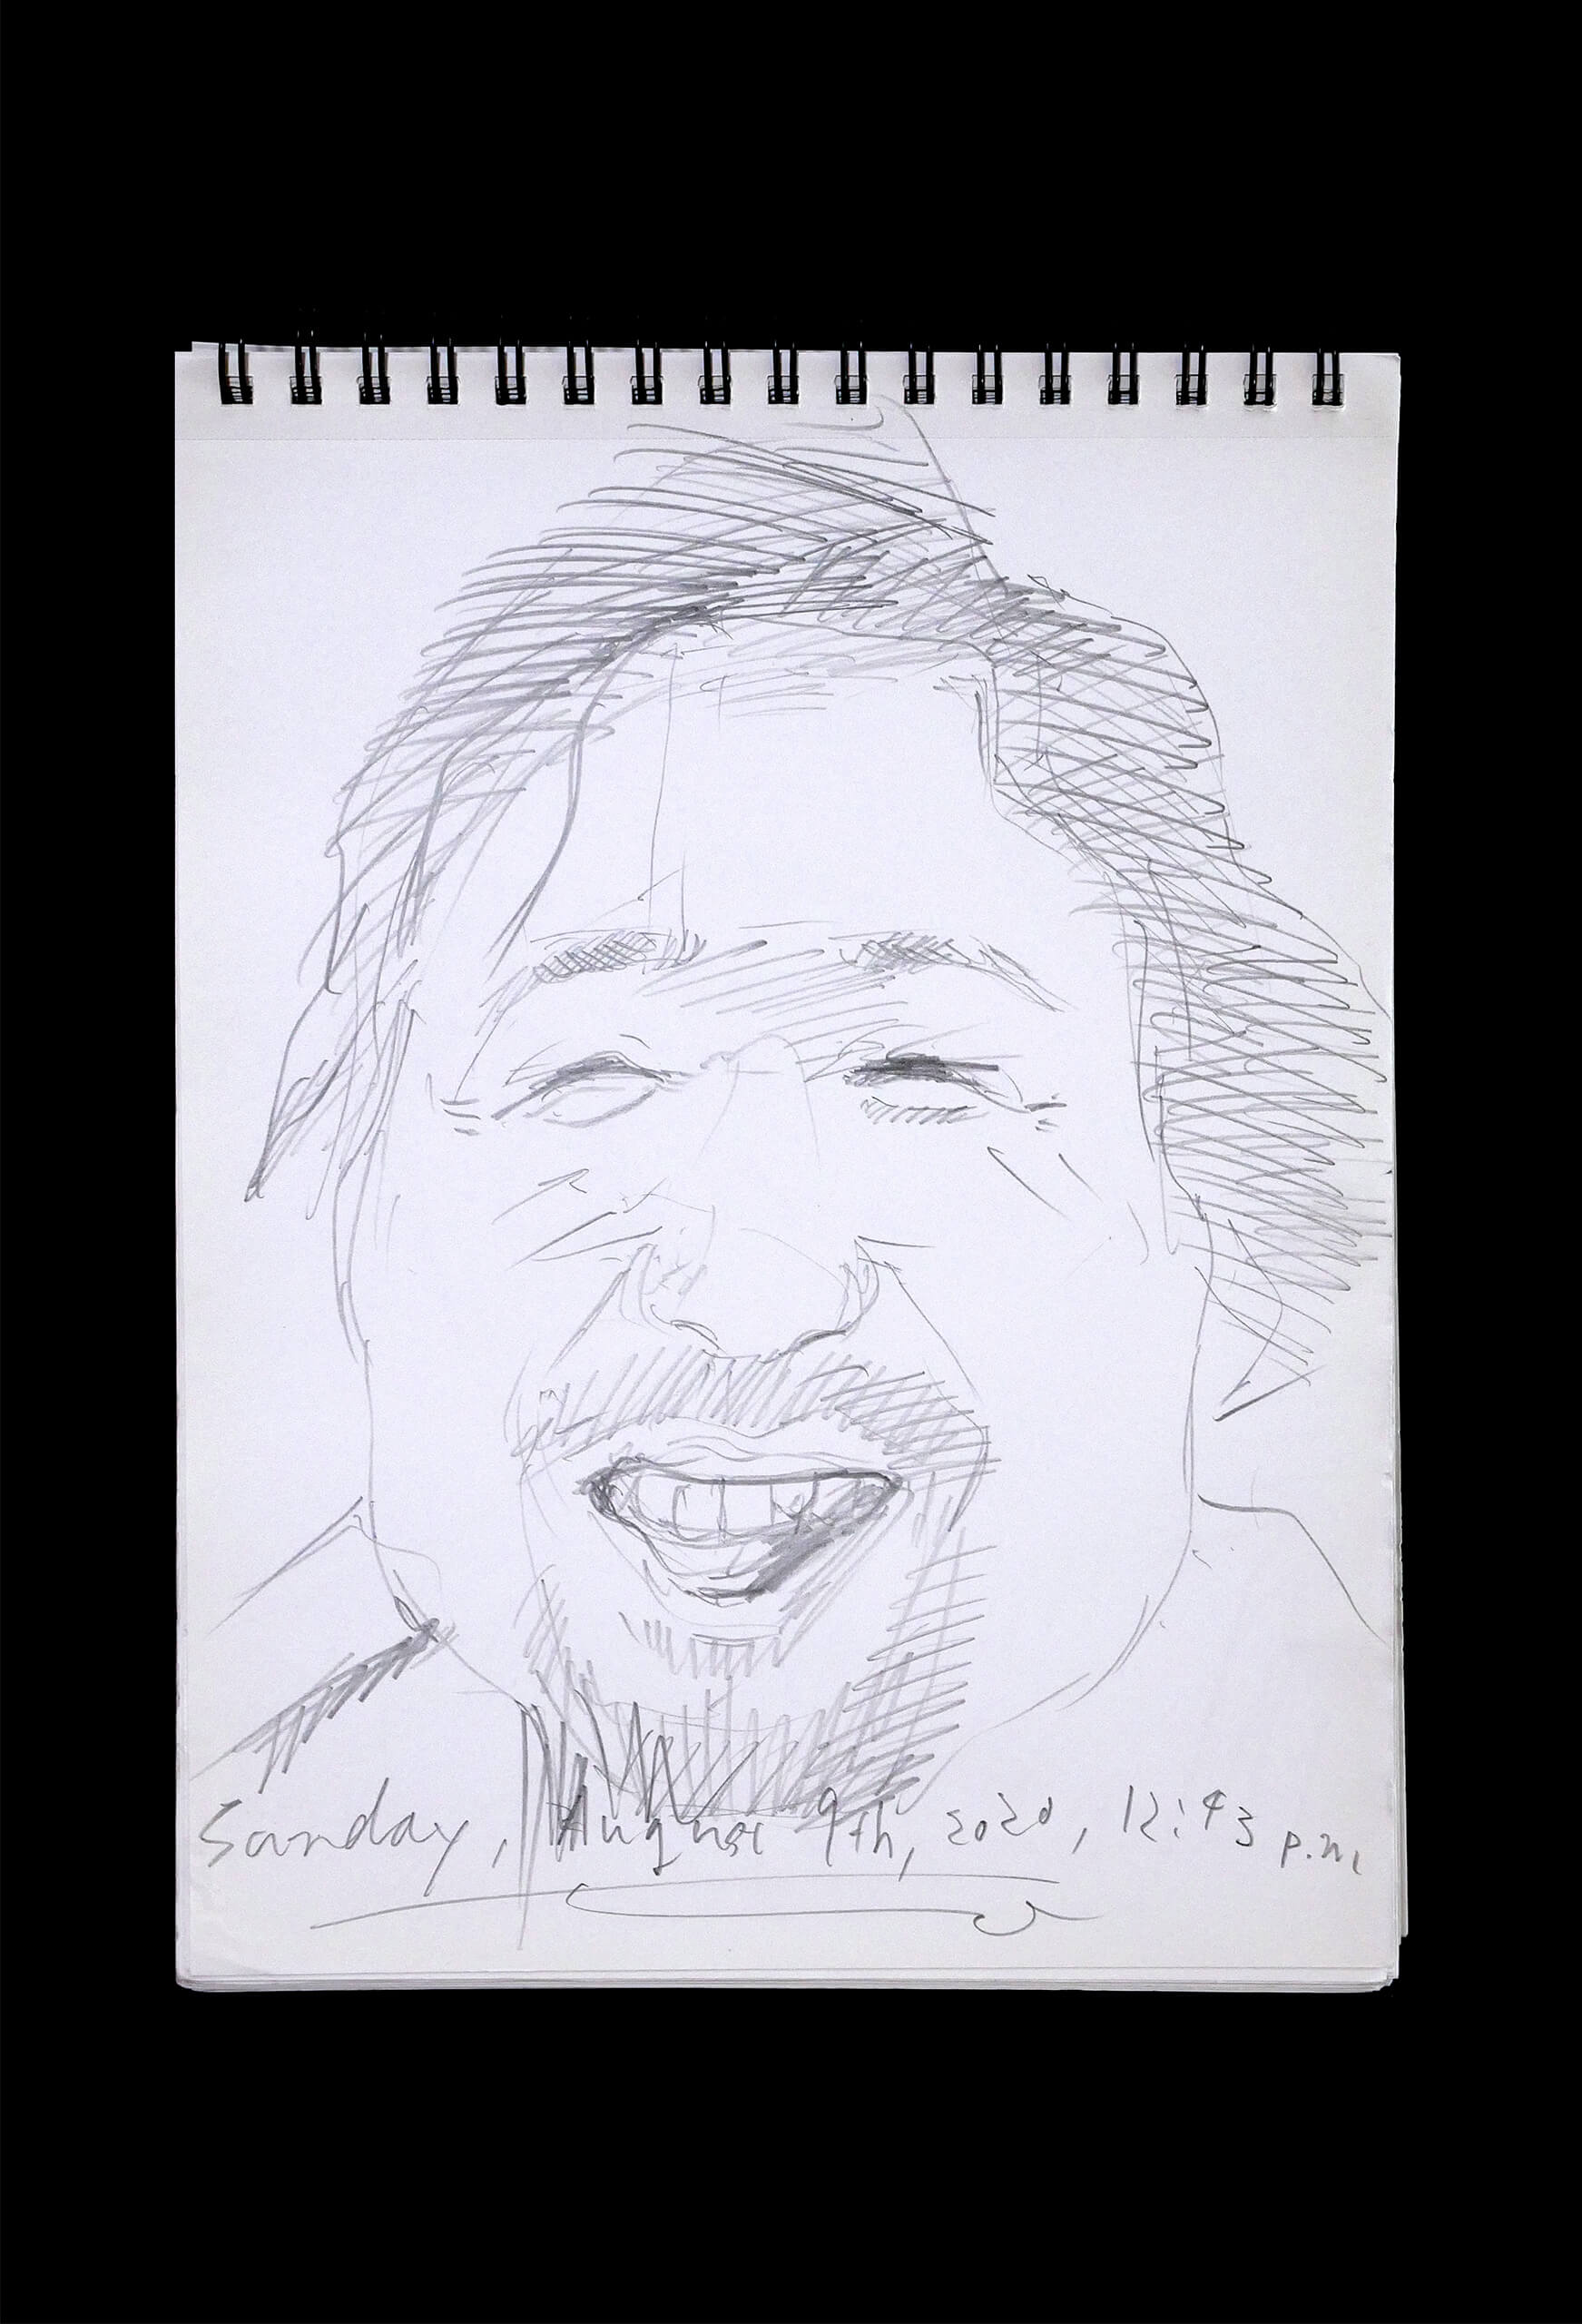 Sunday, August 9th, 2020, 12:43 p.m